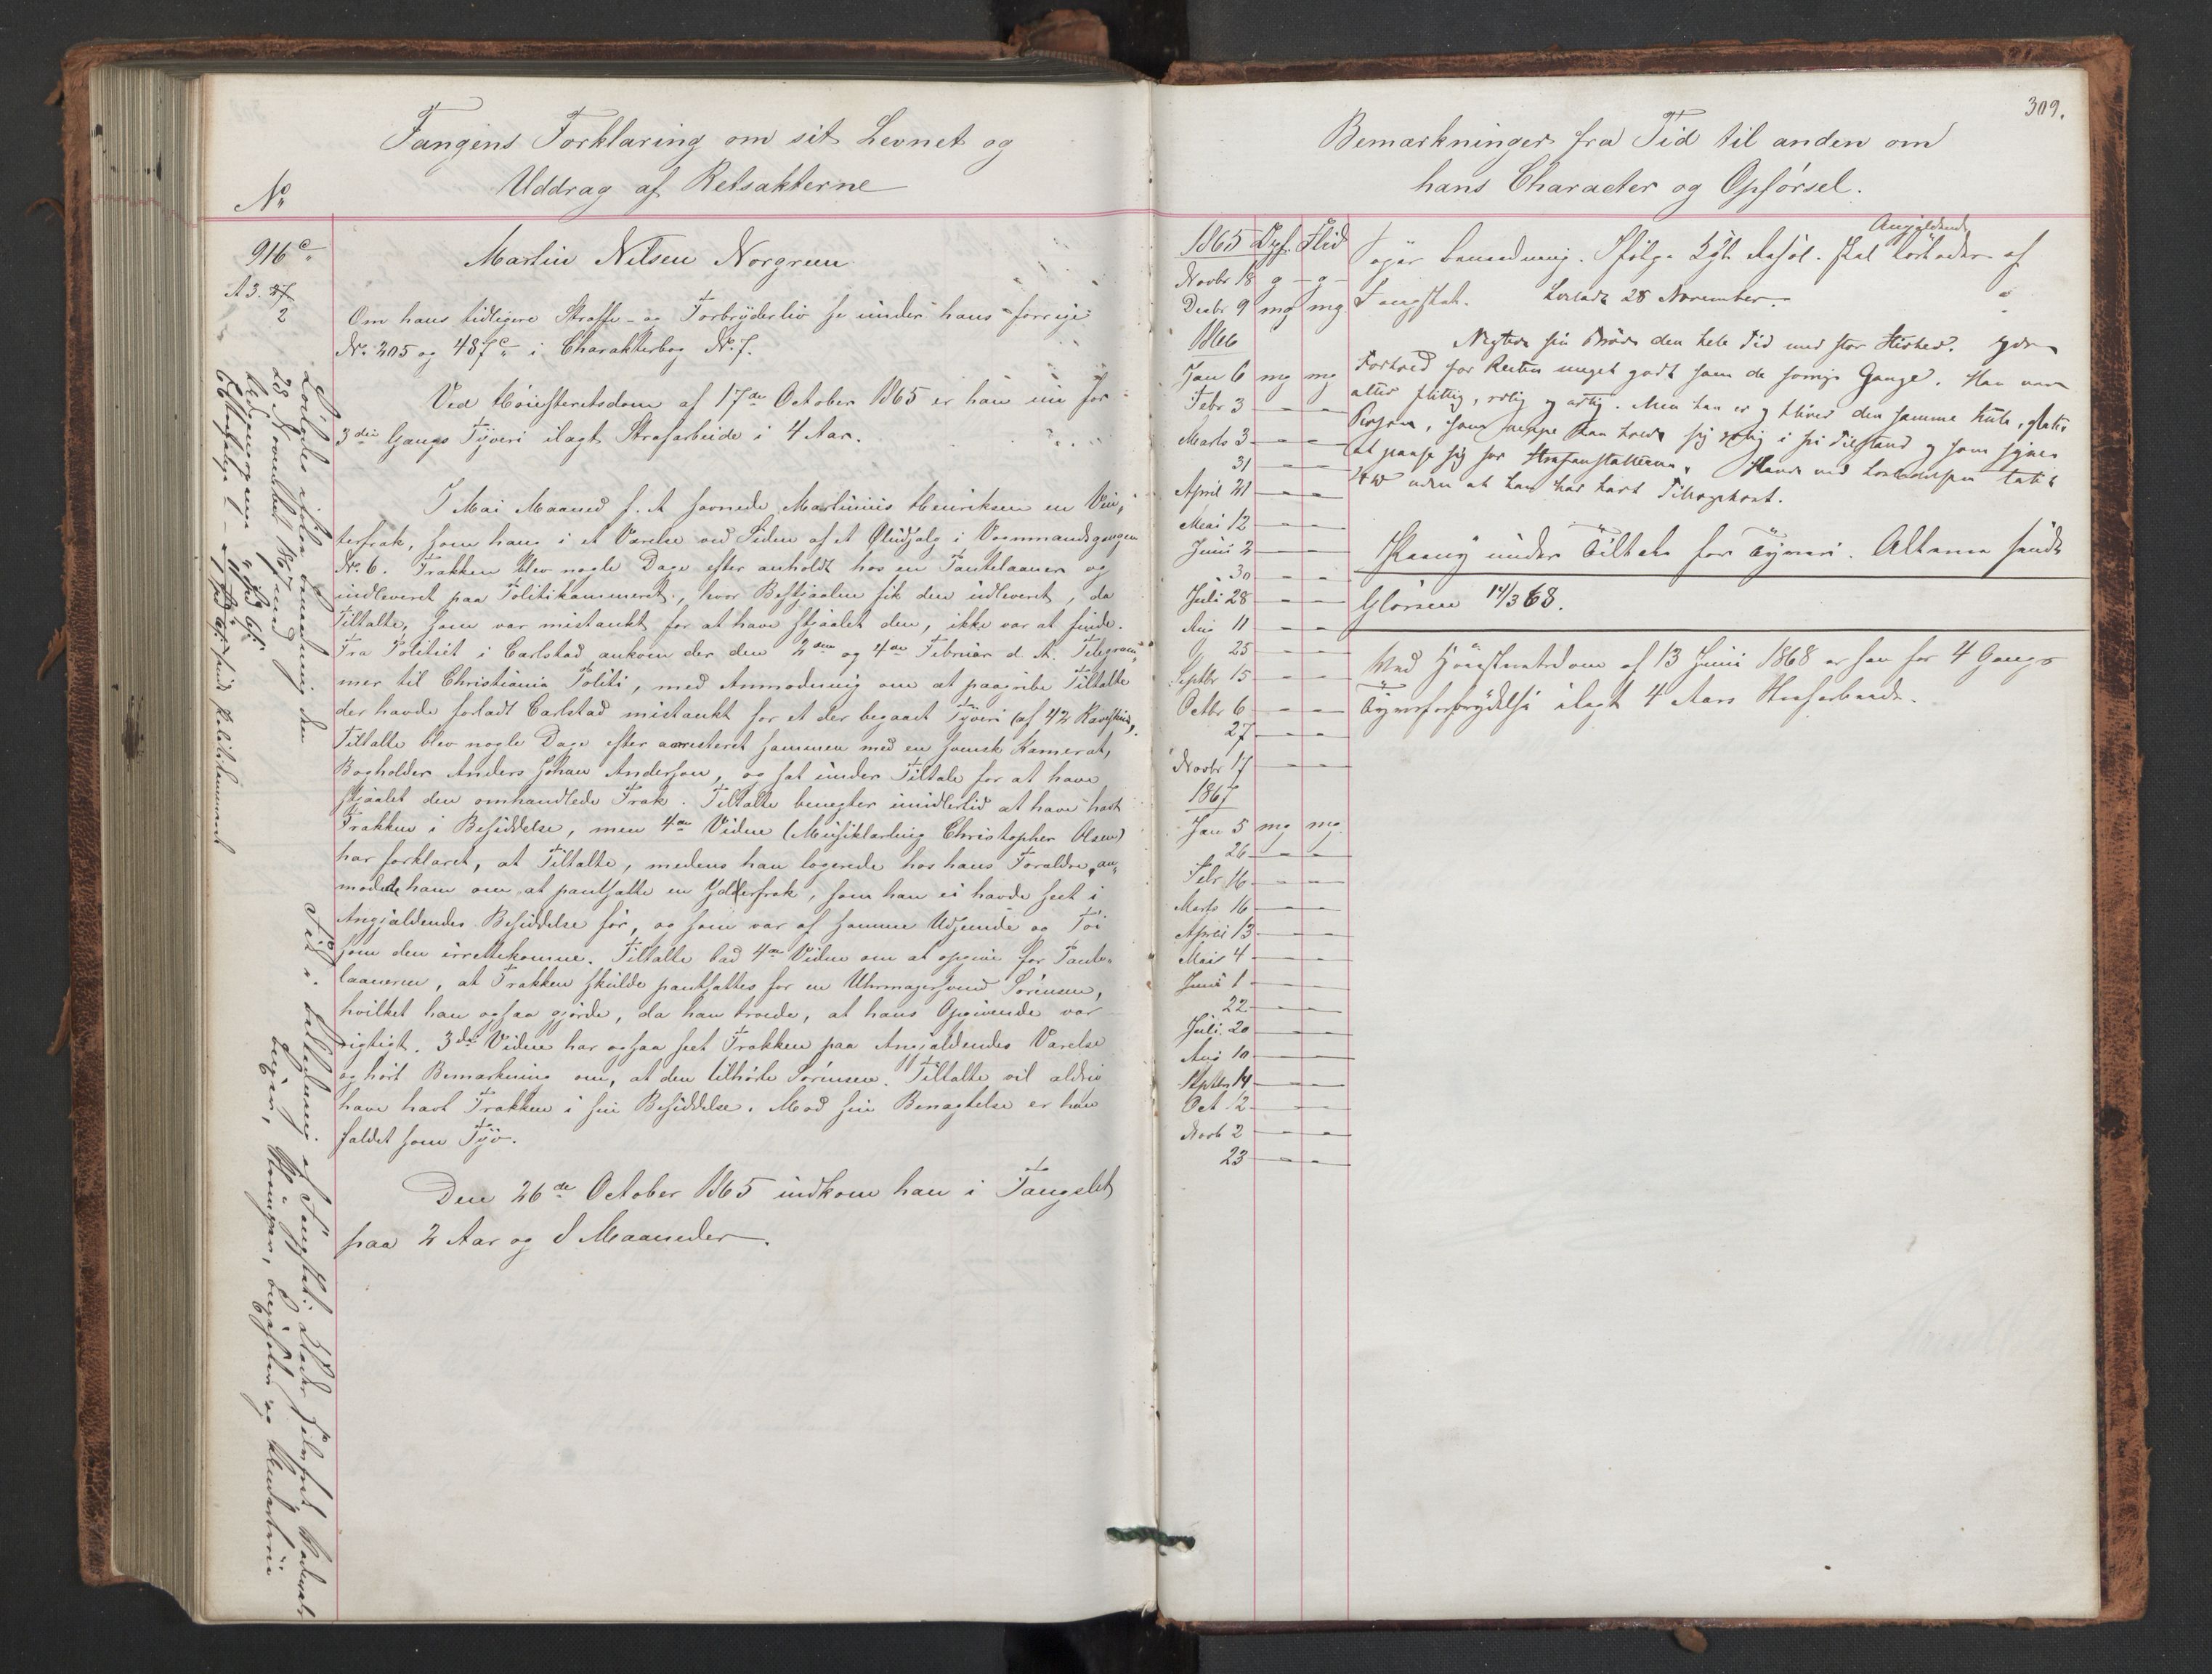 Fangens Forklaring om sit Levnet og
Uddrag af Retsakterne
No
916 c
A 3. 27
2
Martin Nilsen Norgreen
Om hans tidligere Straffe- og Forbryderliv se under hans forrige
No. 205 og 487 c i Charakterbog No. 7.
Ved Høiesteretsdom af 17de October 1865 er han nu for
3die Gangs Tyveri ilagt Strafarbeide i 4 Aar.
I Mai Maaned f. A savnede Martinius Henriksen en Vin-
terfrak, som hang i et Værelse ved Siden af et Øludsalg i Vognmandsgangen
No. 6. Frakken blev nogle Dage efter anholdt hos en Pantelaaner og
indleveret paa Politikammeret, hvor Bestjaalne fik den udleveret, da
Tiltalte, som var mistænkt for at have stjaalet den, ikke var at finde.
Fra Politiet i Carlstad ankom der den 2den og 4de Februar d. A. Telegram-
mer til Christiania Politi, med Anmodning om at paagribe Tiltalte
der havde forladt Carlstad mistænkt for et der begaaet Tyveri (af 42 Ræveskind),
Tiltalte blev nogle Dage efter arresteret sammen med en svensk Kamerat,
Bogholder Anders Johan Anderson, og sat under Tiltale for at have
stjaalet den omhandlede Frak. Tiltalte benegter imidlertid at have havt
Frakken i Besiddelse, men 4de Vidne (Musiklærling Christopher Olsen)
har forklaret, at Tiltalte, medens han logerede hos hans Forældre, an-
modede ham om at pantsætte en Yderfrak, som han ei havde seet i
Angjældendes Besiddelse før, og som var af samme Udseende og Tøi
som den irettekomne. Tiltalte bad 4de Vidne om at opgive for Pante-
laaneren, at Frakken skulde pantsættes for en Uhrmagersvend Sørensen,
hvilket han ogsaa gjorde, da han troede, at hans Opgivende var
rigtigt. 3die Vidne har ogsaa seet Frakken paa Angjældendes Værelse
og hørt Bemærkning om, at den tilhørte Sørensen. Tiltalte vil aldrig
have havt Frakken i sin Besiddelse. Mod sin Benægtelse er han
fældet som Tyv.
Den 26de October 1865 indkom han i Fængslet
paa 2 Aar og 8 Maaneder.
Løslodes ifølge Benaadning den
28 November 1867
309.
Bemærkninger fra Tid til anden om
hans Character og Opførsel.
1865 Opf. Flid
Novbr 18 g g
Decbr 9 mg mg
1866
Jan 6 mg mg
Febr 3 – –
Marts 3 – –
31 – –
April 21 – –
Mai 12 – –
Juni 2 – –
" 30 – –
Juli 28 – –
Aug 11 – –
25 – –
Septbr 15 – –
Octbr 6 – –
27 – –
Novbr 17 – –
1867
Jan 5 mg mg
26 – –
Febr 16 – –
Marts 16 – –
April 13 – –
Mai 4 – –
Juni 1 – –
22 – –
Juli 20 – –
Aug 10 – –
Septbr 14 – –
Oct 12 – –
Novb 2 – –
23 – –
Angjældende
Søger Benaadning. Ifølge Kgl. Resol. skal løslades af
Fængslet. Løsladt 28 November.
Negtede sin Brøde den hele Tid med stor Haardhed.
Forhold for Resten meget godt som de forrige Gange. Han var
altid flittig, rolig og artig. Men han er og bliver den samme
Person, som neppe kan holde sig rolig i fri Tilstand og som synes
at passe sig for Strafanstalterne.
uden at han har havt Tilbagekost.
under Tiltale for Tyveri. Attest sendt
14/3 68.
Ved Høiesteretsdom af 13 Juni 1868 er han for 4 Gangs
Tyvsforbrydelse ilagt 4 Aars Strafarbeide.